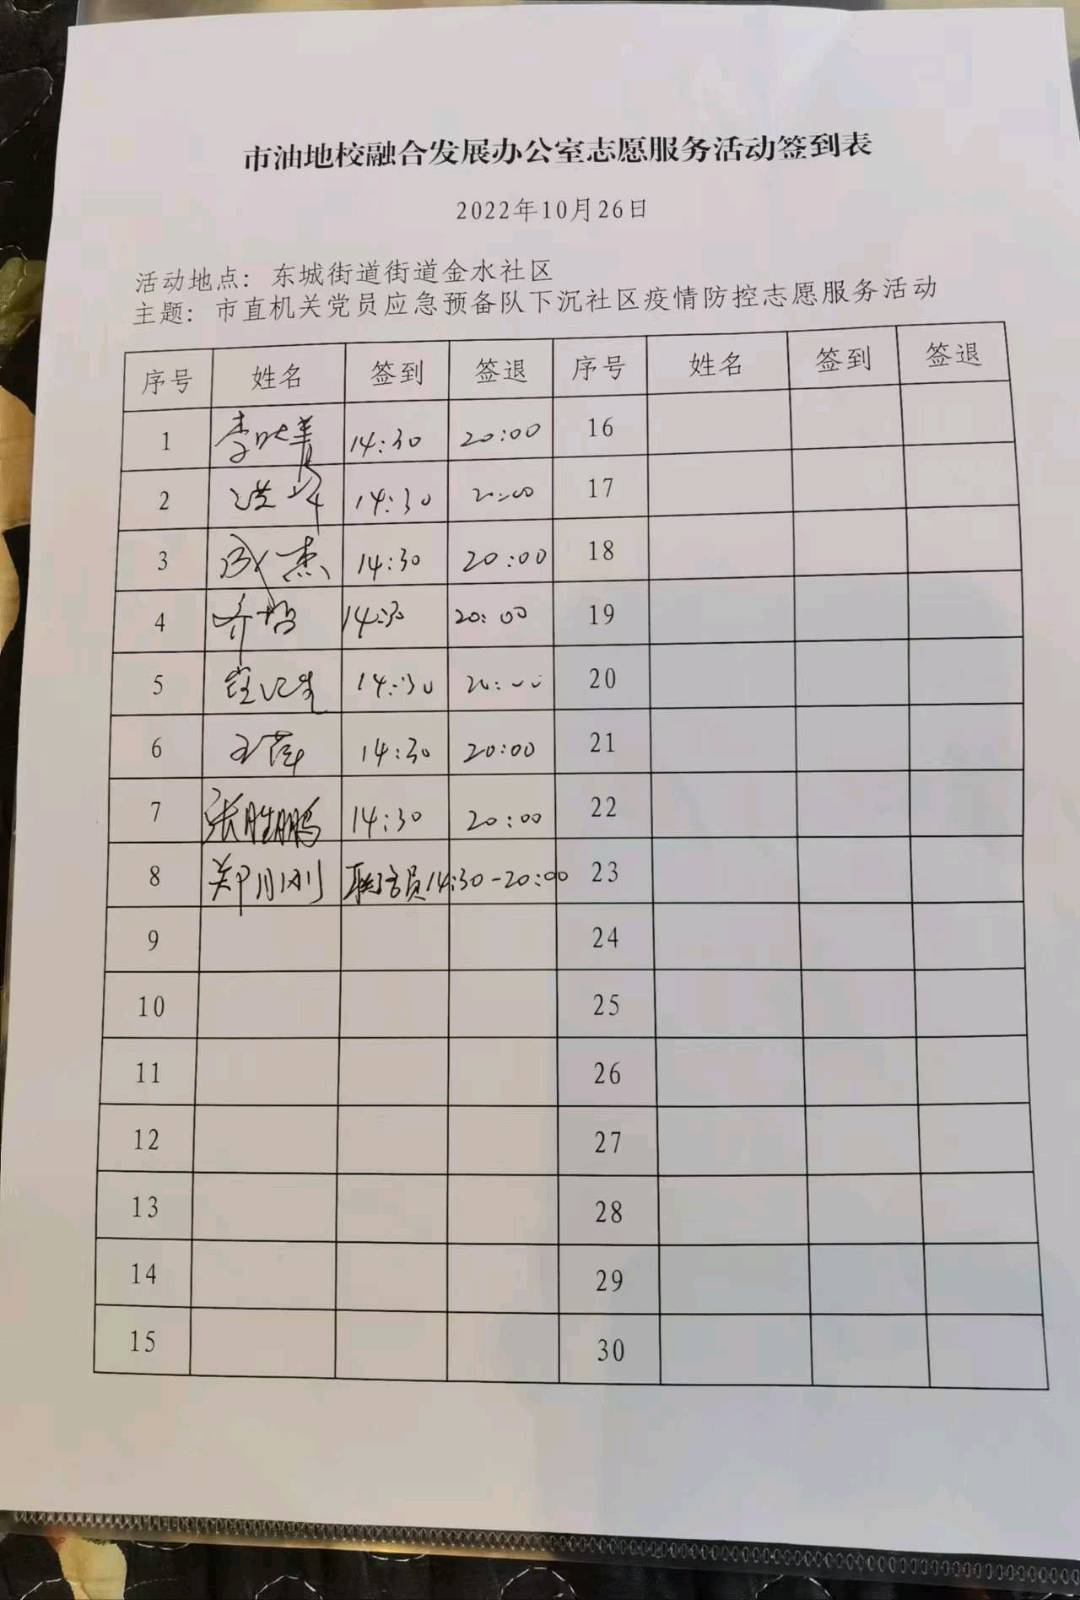 市油地校融合发展办公室志愿服务活动签到表
2022年10月26日
活动地点：东城街道街道金水社区
主题：市直机关党员应急预备队下沉社区疫情防控志愿服务活动
序号 姓名 签到 签退 序号 姓名 签到 签退
1 李 14:30 20:00 16
2 洪 14:30 20:00 17
3 杰 14:30 20:00 18
4 乔 14:30 20:00 19
5 14:30 20:00 20
6 王萍 14:30 20:00 21
7 张胜鹏 14:30 20:00 22
8 郑月刚 联络员14:30-20:00 23
9 24
10 25
11 26
12 27
13 28
14 29
15 30